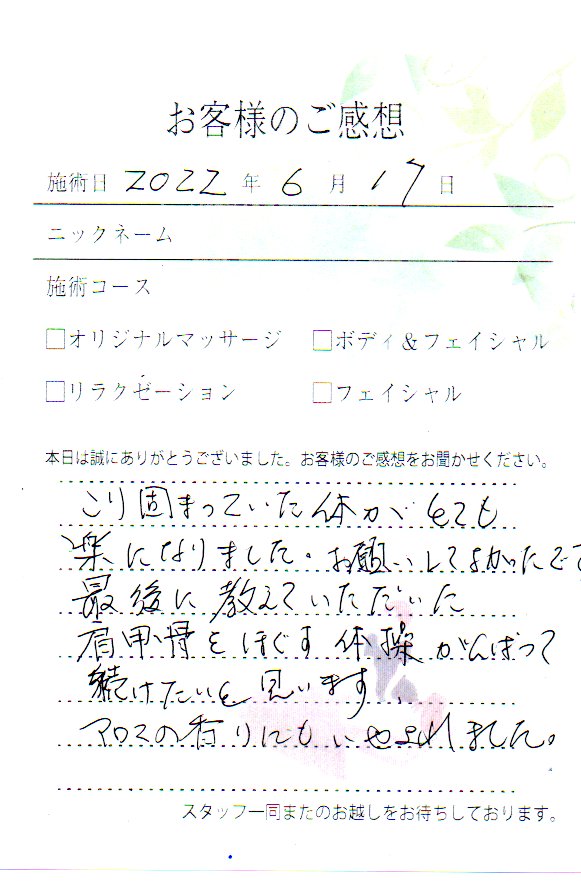 お客様のご感想
施術日 2022 年 6 月 17 日
ニックネーム
施術コース
□オリジナルマッサージ □ボディ&フェイシャル
□リラクゼーション □フェイシャル
本日は誠にありがとうございました。お客様のご感想をお聞かせください。
こり固まっていた体がとても
楽になりました。お願いしてよかったです
最後に教えていただいた
肩甲骨をほぐす体操がんばって
続けたいと思います。
アロマの香りにもいやされました。
スタッフ一同またのお越しをお待ちしております。